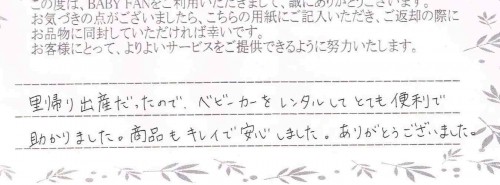 この度は、BABY FANをご利用いただきまして、誠にありがとうございます。
お気づきの点がございましたら、こちらの用紙にご記入いただき、ご返却の際に
お品物に同封していただければ幸いです。
お客様にとって、よりよいサービスをご提供できるように努力いたします。
里帰り出産だったので、ベビーカーをレンタルしてとても便利で
助かりました。商品もキレイで安心しました。ありがとうございました。